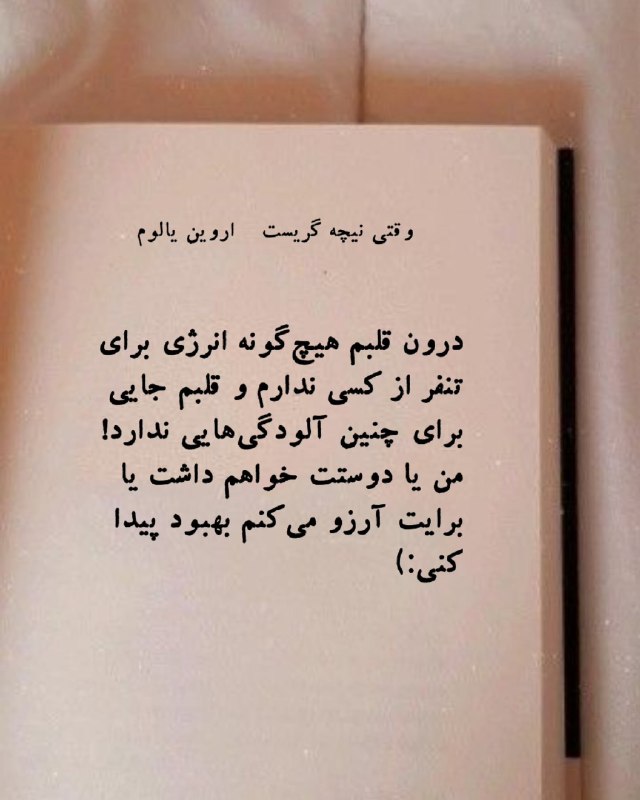 وقتی نیچه گریست   اروین یالوم
درون قلبم هیچ‌گونه انرژی برای
تنفر از کسی ندارم و قلبم جایی
برای چنین آلودگی‌هایی ندارد!
من یا دوستت خواهم داشت یا
برایت آرزو می‌کنم بهبود پیدا
کنی:)